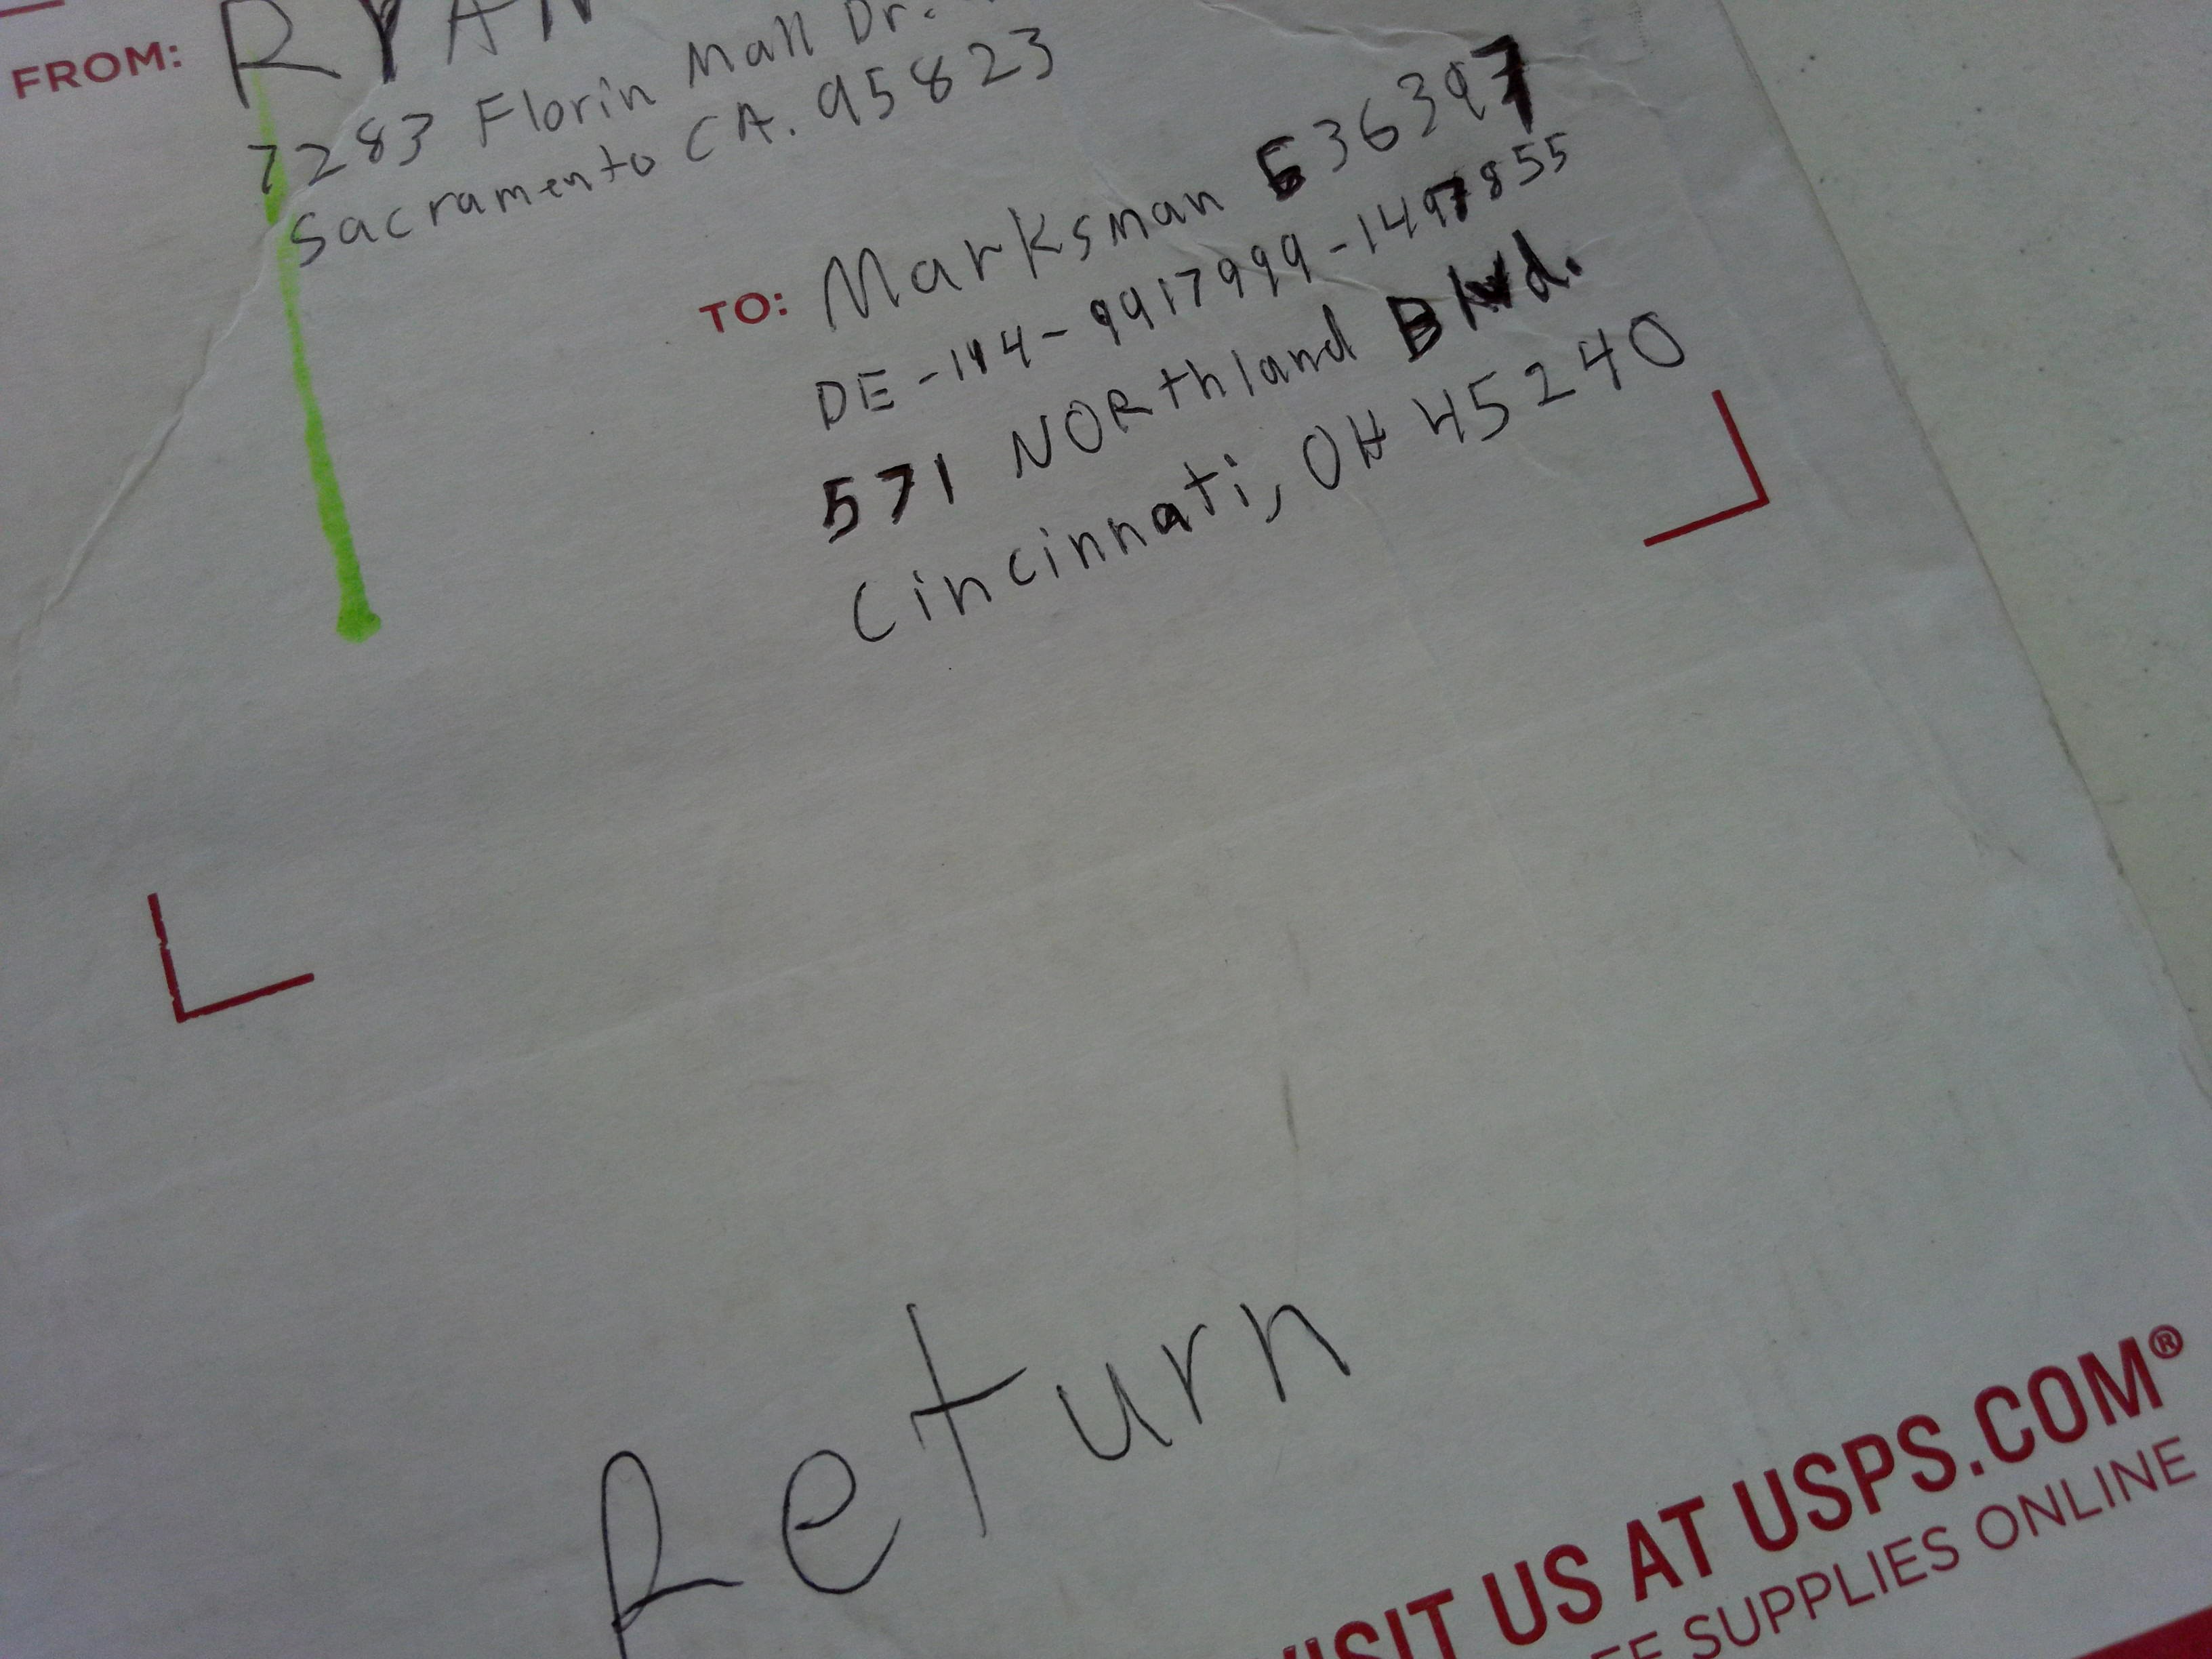 FROM: RYAN
7283 Florin Mall Dr.
Sacramento CA. 95823
TO: Marksman 636397
DE-114-9917999-1497855
571 NORthland Blvd.
Cincinnati, OH 45240
Return
VISIT US AT USPS.COM®
SUPPLIES ONLINE